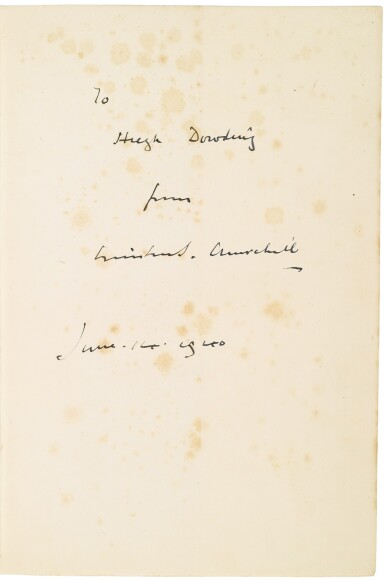 To
Hugh Dowding
from
Winston S. Churchill
June. 14. 1940